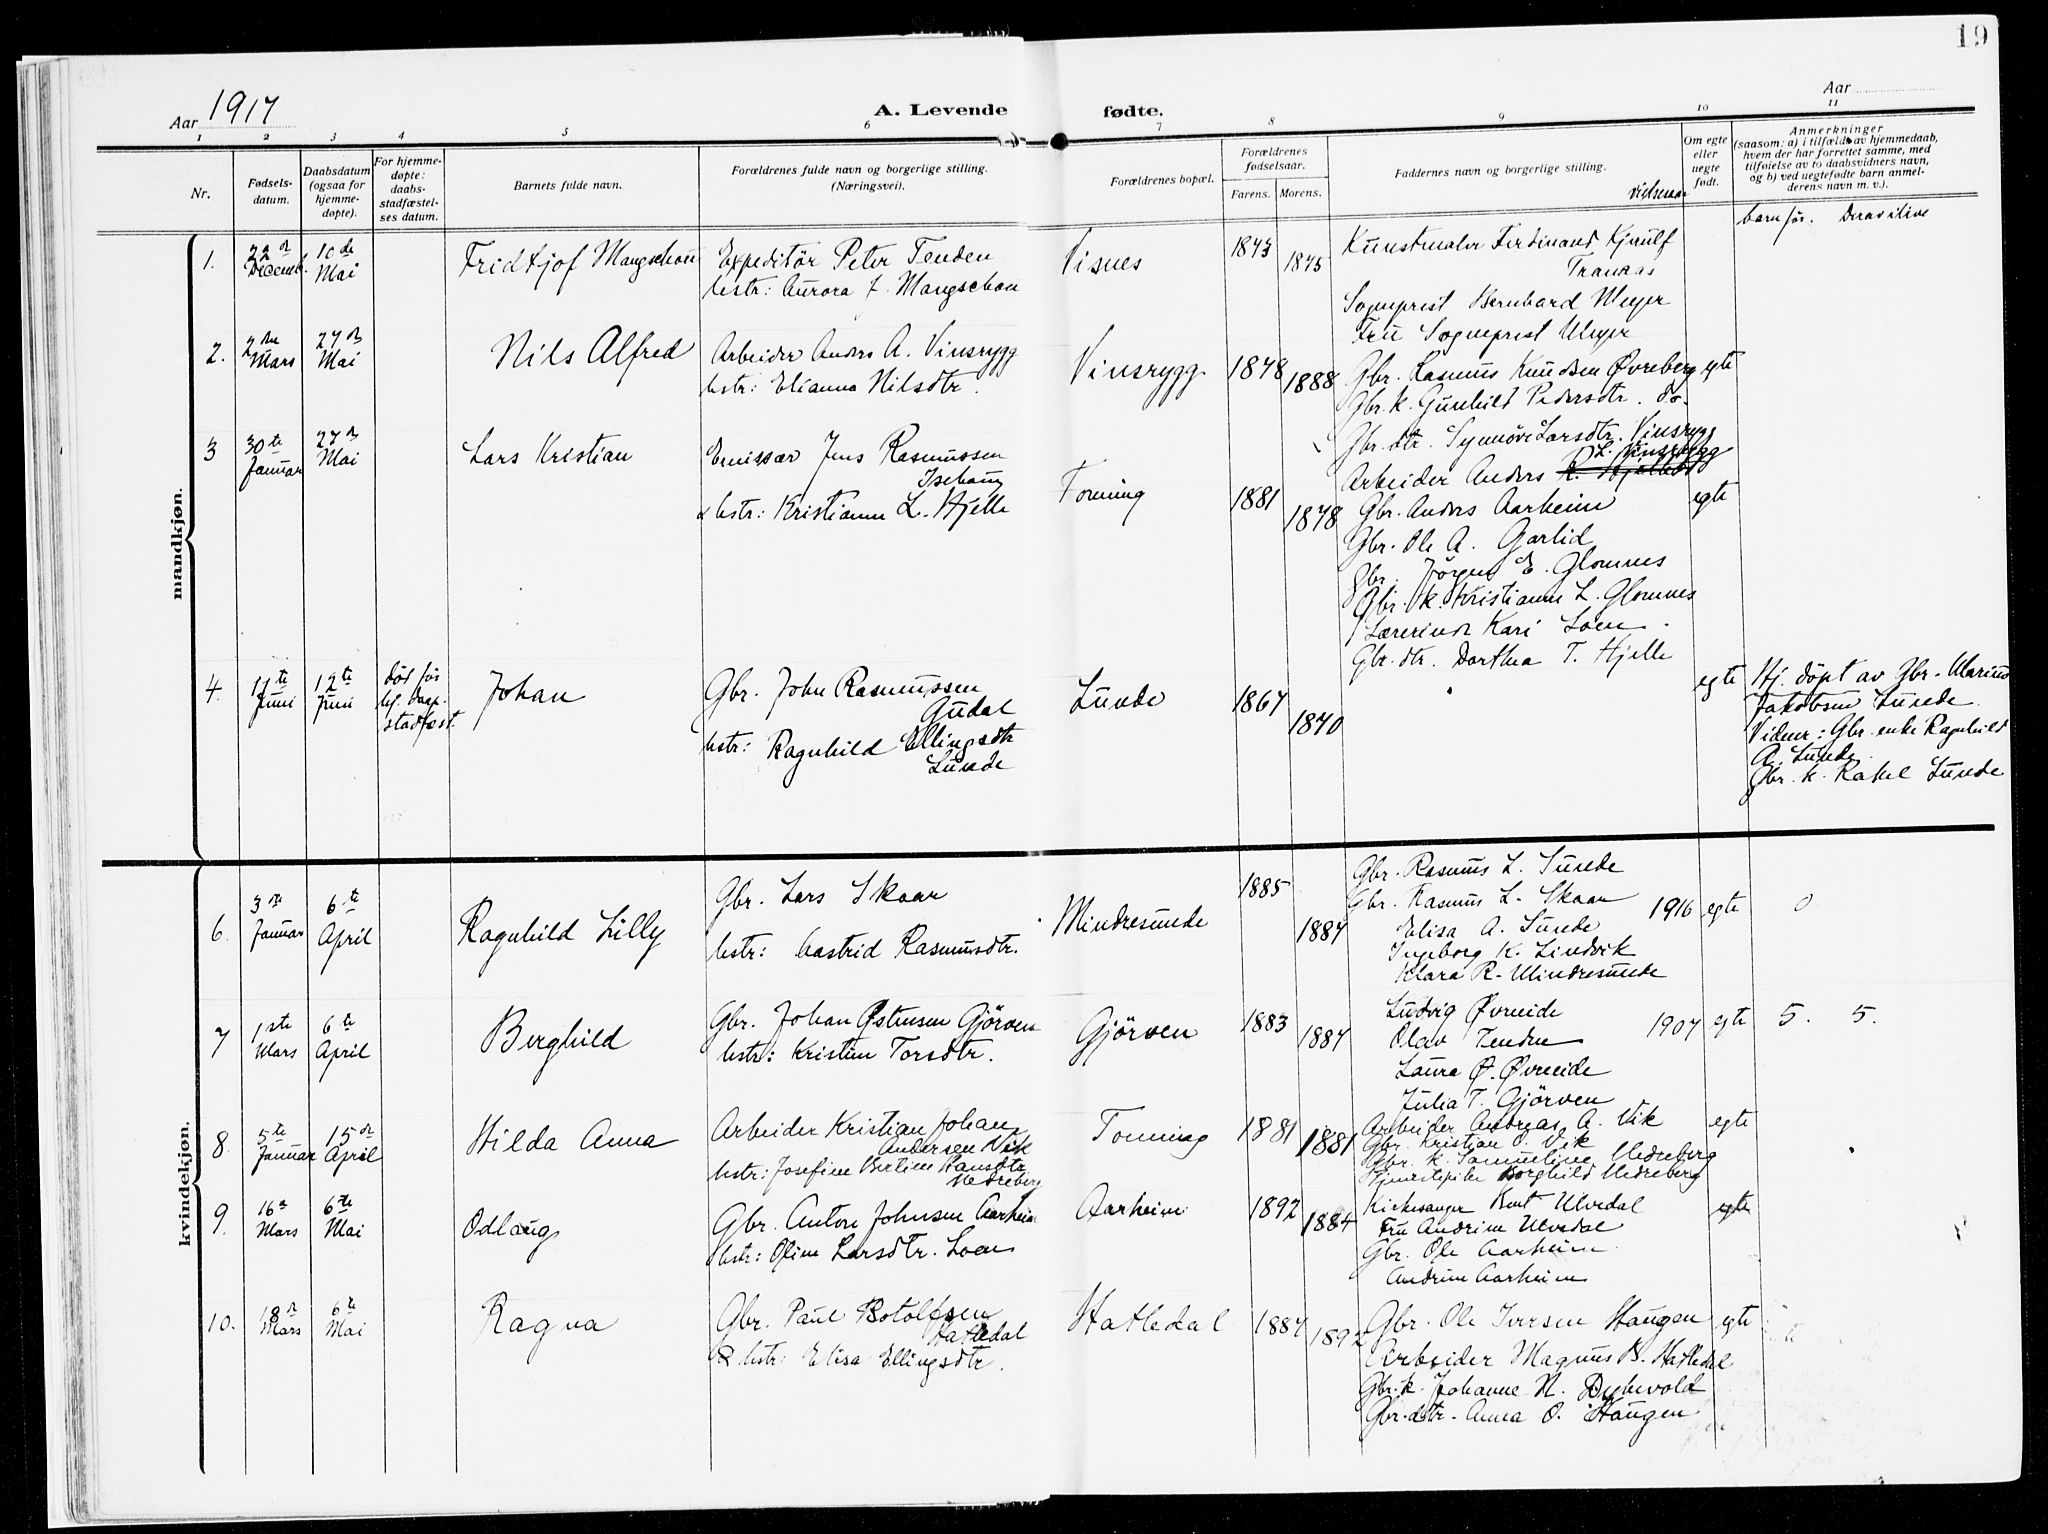 19
Aar 1917
A. Levende fødte.
Aar
1 2 3 4 5 6 7 8 9 10 11
Nr.
Fødsels-
datum.
Daabsdatum
(ogsaa for
hjemme-
døpte).
For hjemme-
døpte:
daabs-
stadfæstel-
ses datum.
Barnets fulde navn.
Forældrenes fulde navn og borgerlige stilling.
(Næringsvei).
Forældrenes bopæl.
Forældrenes
fødselsaar.
Farens. Morens.
Faddernes navn og borgerlige stilling.
Vielsesaar
Om egte
eller
uegte
født.
Anmerkninger
(saasom: a) i tilfælde av hjemmedaab,
hvem der har forrettet samme, med
tilføielse av to daabsvidners navn,
og b) ved uegtefødte barn anmel-
derens navn m. v.).
barn før. Derav ilive
mandkjøn.
1.
22de
Decemb.
10de
Mai
Fridtjof Mangschou
Expeditør Peter Tenden
hstr: Aurora F. Mangschou
Visnes
1873
1875
Kunstmaler Ferdinand Kjerulf
Tranaas
Sogneprest Bernhard Meyer
Fru Sogneprest Meyer
2.
2den
Mars
27de
Mai
Nils Alfred
Arbeider Anders A. Vinsrygg
hstr: Elianna Nilsdtr.
Vinsrygg
1878
1888
Gbr. Rasmus Knudsen Øvreberg
Gbr. k. Gunhild Pedersdtr. do-
Gbr. dtr. Synnöve Larsdtr. Vinsrygg
Arbeider Anders L. Vinsrygg
egte
3
30te
Januar
27de
Mai
Lars Kristian
Emissær Jens Rasmussen
hstr: Kristianne L. Hjelle
Tonning
1881
1878
Gbr. Anders Aarheim
Gbr. Ole A. Garlid
Gbr. Jörgen E. Glomnes
Gbr. k. Kristianne L. Glomnes
Lærerinde Kari Loen.
Gbr. dtr. Dorthea T. Hjelle
egte
4.
11te
Juni
12te
Juni
död før
hj. daap.
stadfæst.
Johan
Gbr. John Rasmussen
Gudal
hstr: Ragnhild Ellingsdtr
Lunde
Lunde
1867
1870
egte
Hj. döpt av Gbr. Marius
Jakobsen Lunde.
Vidner: Gbr. enke Ragnhild
A. Lunde.
Gbr. k. Rakel Lunde
kvindekjøn.
6.
3de
Januar
6te
April
Ragnhild Lilly
Gbr. Lars Skaar
hstr: Aastrid Rasmusdtr.
Mindresunde
1885
1887
Gbr. Rasmus L. Sunde
Gbr. Rasmus L. Skaar
Elisa A. Sunde
Ingeborg K. Lindvik
Klara R. Mindresunde
1916
egte
0
7
1ste
Mars
6te
April
Berghild
Gbr. Johan Østensen Gjörven
hstr: Kristine Torsdtr.
Gjörven
1883
1887
Ludvig Øvreeide
Olav Tenden
Laura Ø. Øvreeide
Julia T. Gjörven
1907
egte
5. 5.
8.
5te
Januar
15de
April
Hilda Anna
Arbeider Kristian Johan
Andersen Vik
hstr: Josefine Bertine Hansdtr
Medreberg
Tonning
1881
1881
Arbeider Andreas A. Vik
Gbr. Kristian J. Vik
Gbr. k. Samueline Nedreberg
Tjenestepike Borghild Nedreberg
egte
9.
16de
Mars
6te
Mai
Odlaug
Gbr. Anton Johnsen Aarheim
hstr: Oline Larsdtr. Loen
Aarheim
1892
1884
Kirkesanger Bent Ulvedal
Fru Andrine Ulvedal
Gbr. Ole Aarheim
Andrine Aarheim
egte
10.
18de
Mars
6te
Mai
Ragna
Gbr. Paul Botolfsen
Hatledal
hstr: Elisa Ellingsdtr.
Hatledal
1887
1892
Gbr. Ole Iversen Haugen
Arbeider Magnus B. Hatledal
Gbr. k. Johanne N. Dybevold
Gbr. dtr. Anna O. Haugen
egte